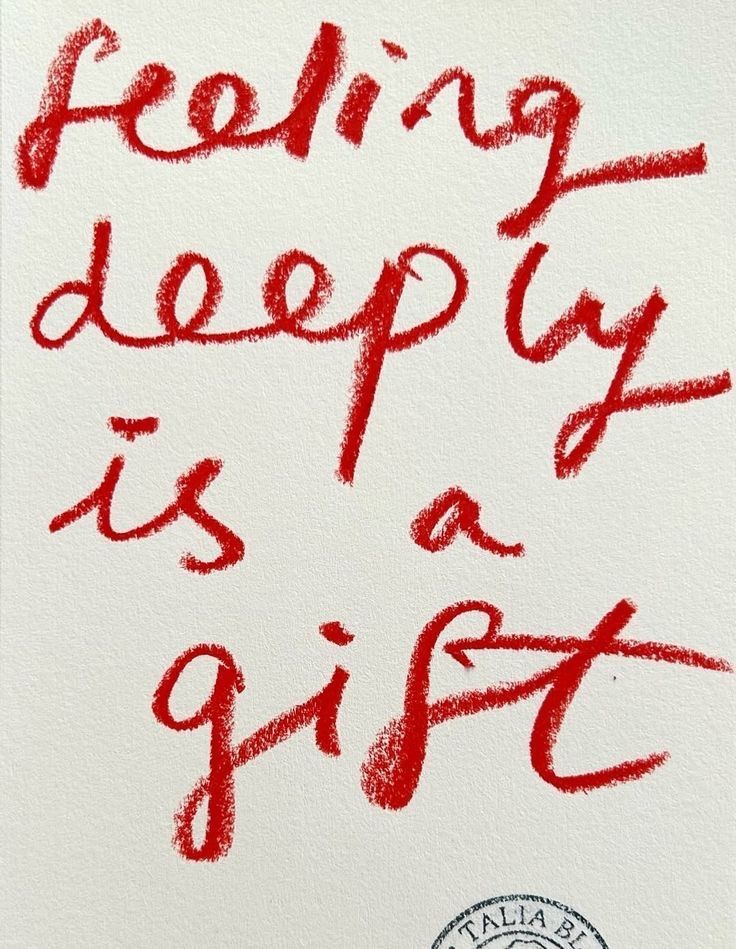 feeling
deeply
is a
gift
TALIA